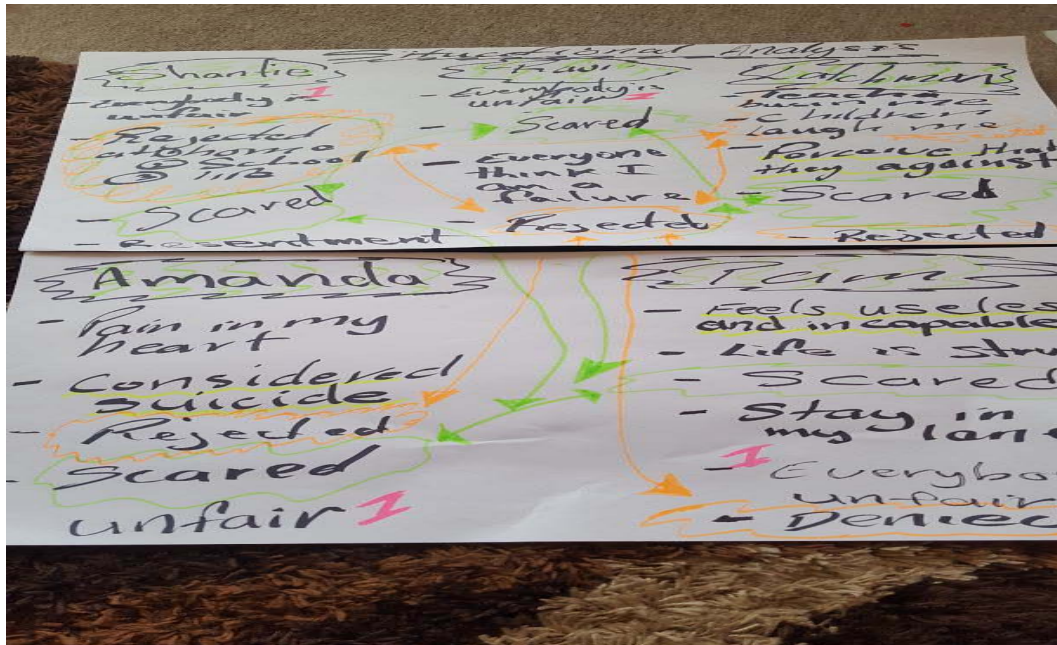 Situational Analysis
Shantie
- Everybody is
unfair 1
- Rejected
at home
② School
③
- Scared
- Resentment
- Everybody is
unfair 1
- Scared
- Everyone
think I
am a
failure
- Rejected
Latchman
- Teacher
- Children
laugh me
- Perceive that
they against
- Scared
- Rejected
Amanda
- Pain in my
heart
- Considered
suicide
- Rejected
- Scared
unfair 1
Pam
- Feels useles
and incapable
- Life is stru
- Scared
- Stay in
my lane
- 1 Everybo
unfair
- Denied